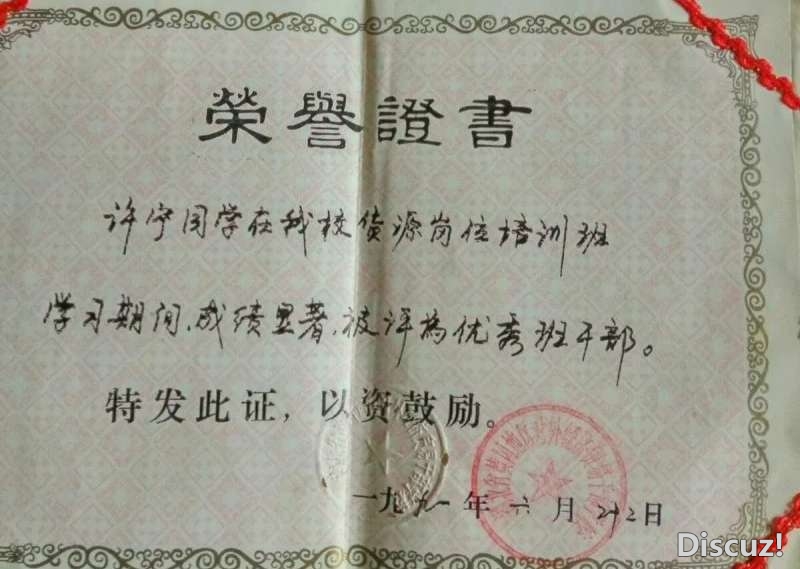 榮譽證書
许宁同学在我校货源岗位培训班
学习期间,成绩显著,被评为优秀班干部。
特发此证,以资鼓励。
一九九一年六月廿二日
Discuz!